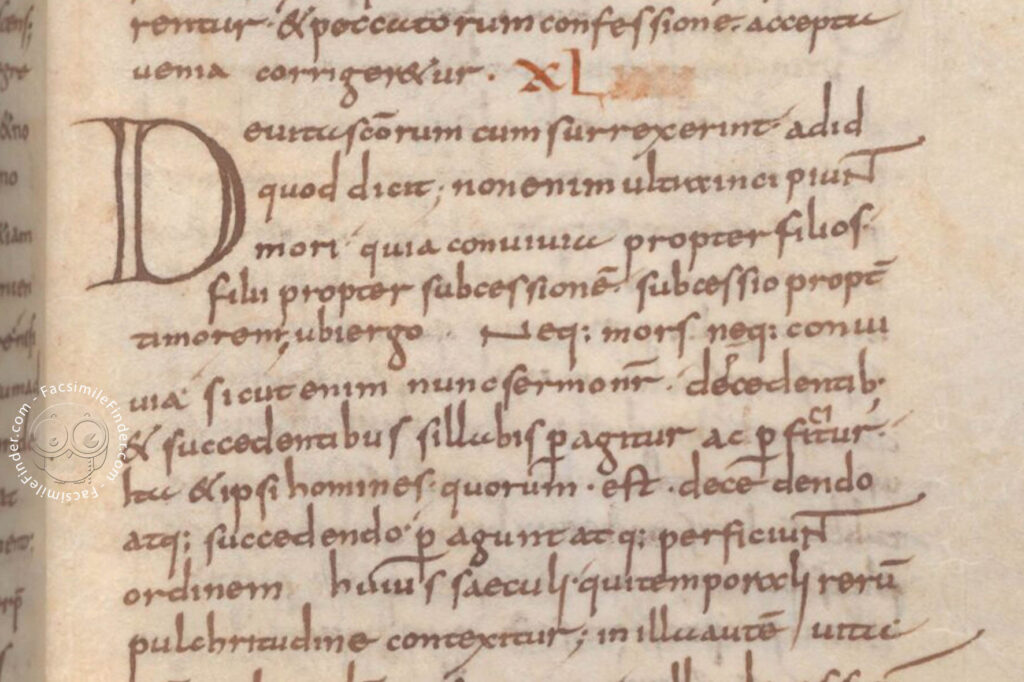 rentur · & peccatorum confessione · accepta
uenia corriger&ur · XL
De uita scōrum cum surrexerint · ad id
quod dicit ; non enim ultra incipiunt
mori · quia conuiuia propter filios ·
filii propter subcessionē · subcessio propt̄
timorem ; ubi ergo Neq: mors neq: conui
uia sicut enim nunc sermonr̄ · decedentib;
& succedentibus sillabis p̄agitur ac p̄ficitur ·
ita & ipsi homines · quorum · est · decedendo
atq: succedendo · p̄agunt atq: perficiunt
ordinem huius saeculi · qui temporali rerū
pulchritudine contexitur ; in illa autē uita
FacsimileFinder.com - FacsimileFinder.com -